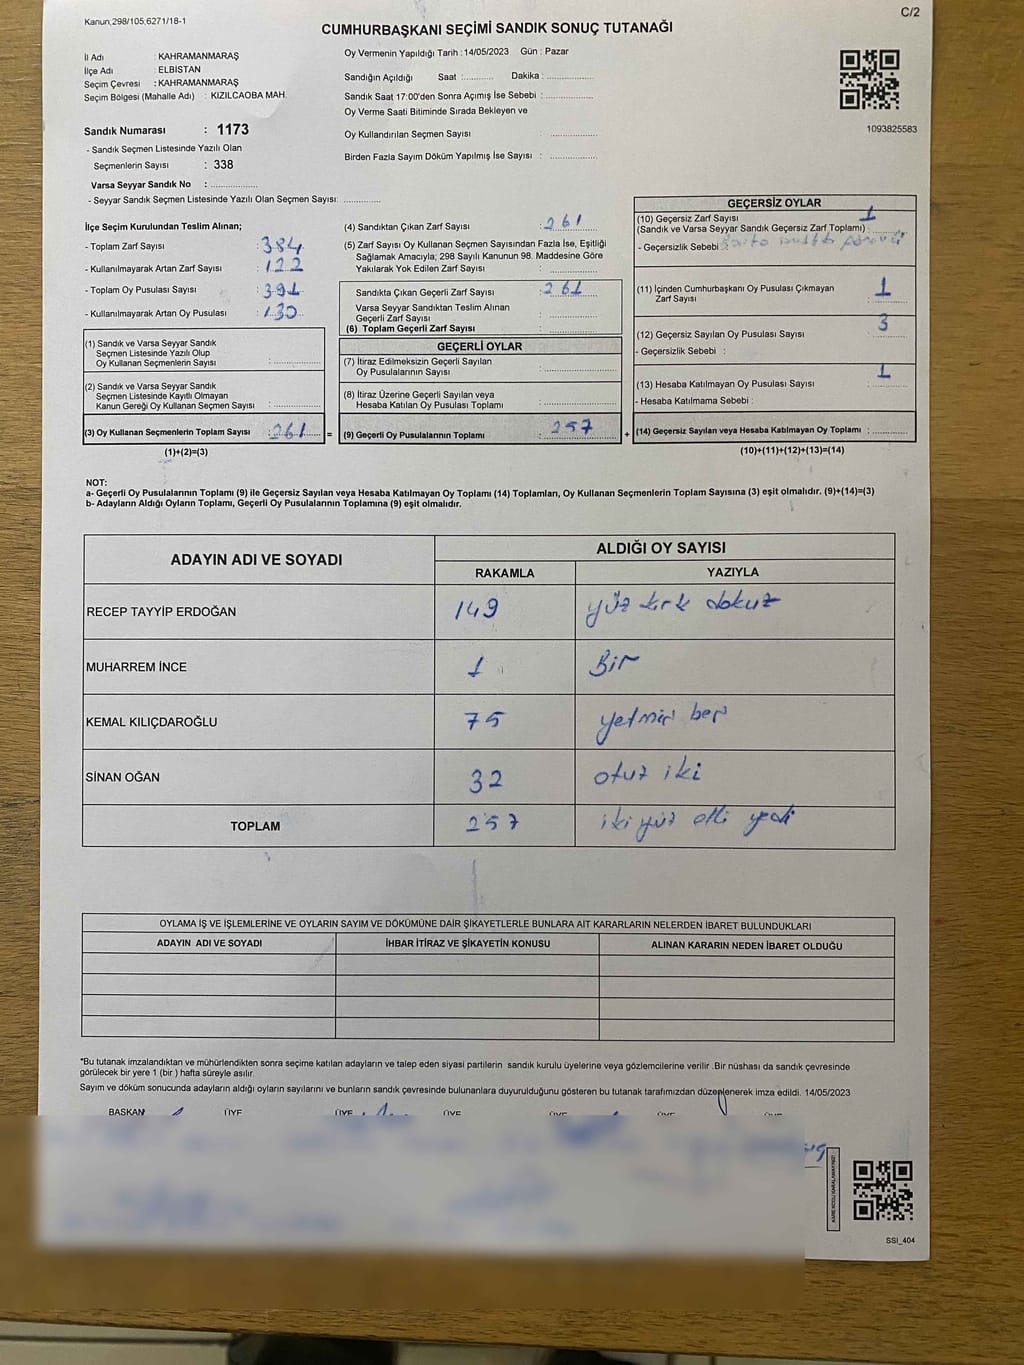 Kanun,298/105,6271/18-1
C/2
CUMHURBAŞKANI SEÇİMİ SANDIK SONUÇ TUTANAĞI
İl Adı : KAHRAMANMARAŞ
İlçe Adı : ELBİSTAN
Seçim Çevresi : KAHRAMANMARAŞ
Seçim Bölgesi (Mahalle Adı) : KIZILCAOBA MAH.
Sandık Numarası : 1173
- Sandık Seçmen Listesinde Yazılı Olan
Seçmenlerin Sayısı : 338
Varsa Seyyar Sandık No : ..................
- Seyyar Sandık Seçmen Listesinde Yazılı Olan Seçmen Sayısı: .............
Oy Vermenin Yapıldığı Tarih : 14/05/2023 Gün : Pazar
Sandığın Açıldığı Saat :........... Dakika : ................
Sandık Saat 17:00'den Sonra Açımış İse Sebebi : ................
Oy Verme Saati Bitiminde Sırada Bekleyen ve
Oy Kullandırılan Seçmen Sayısı : ................
Birden Fazla Sayım Döküm Yapılmış İse Sayısı : ................
1093825583
İlçe Seçim Kurulundan Teslim Alınan;
- Toplam Zarf Sayısı : 384
- Kullanılmayarak Artan Zarf Sayısı : 122
- Toplam Oy Pusulası Sayısı : 391
- Kullanılmayarak Artan Oy Pusulası : 130
(1) Sandık ve Varsa Seyyar Sandık
Seçmen Listesinde Yazılı Olup
Oy Kullanan Seçmenlerin Sayısı : ................
(2) Sandık ve Varsa Seyyar Sandık
Seçmen Listesinde Kayıtlı Olmayan
Kanun Gereği Oy Kullanan Seçmen Sayısı : ................
(3) Oy Kullanan Seçmenlerin Toplam Sayısı : 261
(1)+(2)=(3)
(4) Sandıktan Çıkan Zarf Sayısı : 261
(5) Zarf Sayısı Oy Kullanan Seçmen Sayısından Fazla İse, Eşitliği
Sağlamak Amacıyla; 298 Sayılı Kanunun 98. Maddesine Göre
Yakılarak Yok Edilen Zarf Sayısı : ................
Sandıkta Çıkan Geçerli Zarf Sayısı : 261
Varsa Seyyar Sandıktan Teslim Alınan
Geçerli Zarf Sayısı : ................
(6) Toplam Geçerli Zarf Sayısı : ................
GEÇERLİ OYLAR
(7) İtiraz Edilmeksizin Geçerli Sayılan
Oy Pusulalarının Sayısı : ................
(8) İtiraz Üzerine Geçerli Sayılan veya
Hesaba Katılan Oy Pusulası Toplamı : ................
= (9) Geçerli Oy Pusulalarının Toplamı : 257 +
GEÇERSİZ OYLAR
(10) Geçersiz Zarf Sayısı 1
(Sandık ve Varsa Seyyar Sandık Geçersiz Zarf Toplamı) :
- Geçersizlik Sebebi :
(11) İçinden Cumhurbaşkanı Oy Pusulası Çıkmayan 1
Zarf Sayısı :
(12) Geçersiz Sayılan Oy Pusulası Sayısı : 3
- Geçersizlik Sebebi :
(13) Hesaba Katılmayan Oy Pusulası Sayısı : 1
- Hesaba Katılmama Sebebi :
(14) Geçersiz Sayılan veya Hesaba Katılmayan Oy Toplamı : ..........
(10)+(11)+(12)+(13)=(14)
NOT:
a- Geçerli Oy Pusulalarının Toplamı (9) ile Geçersiz Sayılan veya Hesaba Katılmayan Oy Toplamı (14) Toplamları, Oy Kullanan Seçmenlerin Toplam Sayısına (3) eşit olmalıdır. (9)+(14)=(3)
b- Adayların Aldığı Oyların Toplamı, Geçerli Oy Pusulalarının Toplamına (9) eşit olmalıdır.
ADAYIN ADI VE SOYADI ALDIĞI OY SAYISI
RAKAMLA YAZIYLA
RECEP TAYYİP ERDOĞAN 149 yüz kırk dokuz
MUHARREM İNCE 1 Bir
KEMAL KILIÇDAROĞLU 75 yetmiş beş
SİNAN OĞAN 32 otuz iki
TOPLAM 257 iki yüz elli yedi
OYLAMA İŞ VE İŞLEMLERİNE VE OYLARIN SAYIM VE DÖKÜMÜNE DAİR ŞİKAYETLERLE BUNLARA AİT KARARLARIN NELERDEN İBARET BULUNDUKLARI
ADAYIN ADI VE SOYADI İHBAR İTİRAZ VE ŞİKAYETİN KONUSU ALINAN KARARIN NEDEN İBARET OLDUĞU
*Bu tutanak imzalandıktan ve mühürlendikten sonra seçime katılan adayların ve talep eden siyasi partilerin sandık kurulu üyelerine veya gözlemcilerine verilir .Bir nüshası da sandık çevresinde
görülecek bir yere 1 (bir ) hafta süreyle asılır.
Sayım ve döküm sonucunda adayların aldığı oyların sayılarını ve bunların sandık çevresinde bulunanlara duyurulduğunu gösteren bu tutanak tarafımızdan düzenlenerek imza edildi. 14/05/2023
BAŞKAN ÜYE ÜYE ÜYE ÜYE ÜYE ÜYE
SSI_404